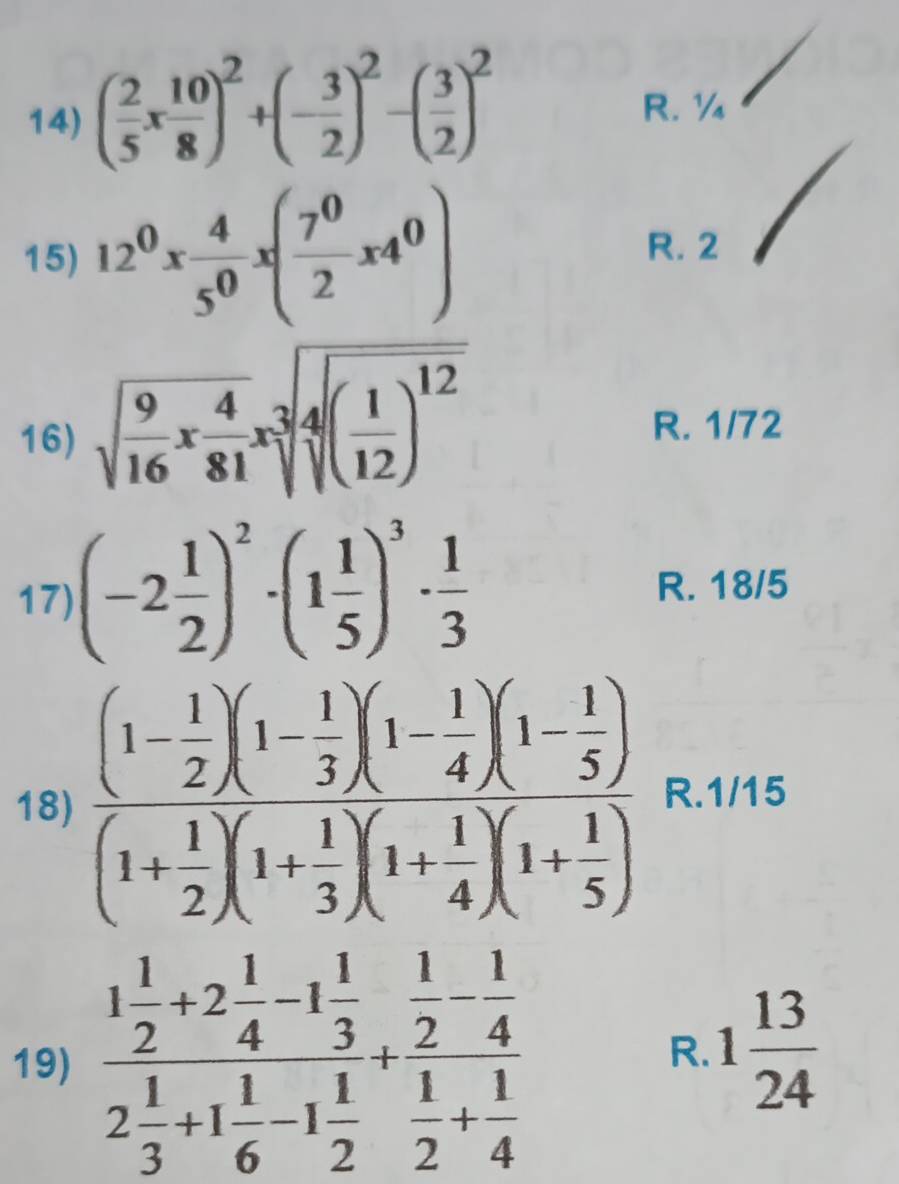 14) (2/5 x 10/8)² + (-3/2)² - (3/2)² R. ¼
15) 12⁰ x 4/5⁰ x (7⁰/2 x4⁰) R. 2
16) √(9/16 x 4/81) x ³√(⁴√((1/12)¹²)) R. 1/72
17) (-2 1/2)² · (1 1/5)³ · 1/3 R. 18/5
18) ((1-1/2)(1-1/3)(1-1/4)(1-1/5))/((1+1/2)(1+1/3)(1+1/4)(1+1/5)) R.1/15
19) (1 1/2 + 2 1/4 - 1 1/3)/(2 1/3 + 1 1/6 - 1 1/2) + (1/2 - 1/4)/(1/2 + 1/4) R. 1 13/24